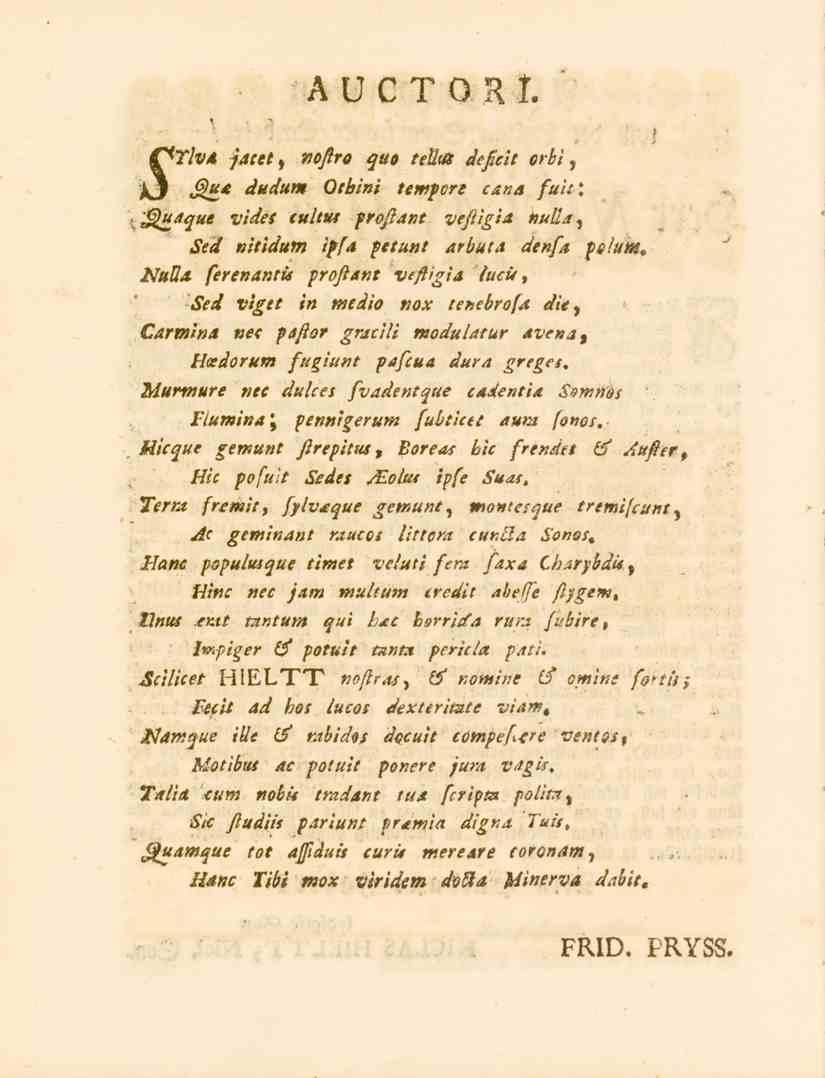 AUCTORI.
SYlva jacet, noſtro quo tellus deficit orbi,
Quæ dudum Othini tempore cana fuit:
Quaque vides cultus proſtant veſtigia nulla,
Sed nitidum ipſa petunt arbuta denſa polum.
Nulla ſerenantis proſtant veſtigia lucis,
Sed viget in medio nox tenebroſa die,
Carmina nec paſtor gracili modulatur avena,
Hœdorum fugiunt paſcua dura greges.
Murmure nec dulces ſvadentque cadentia Somnos
Flumina; pennigerum ſubticet aura ſonos.
Hicque gemunt ſtrepitus, Boreas hic frendet & Auſter,
Hic poſuit Sedes Æolus ipſe Suas.
Terra fremit, ſylvæque gemunt, montesque tremiſcunt,
Ac geminant raucos littora cuncta Sonos.
Hanc populusque timet veluti fera ſaxa Charybdis,
Hinc nec jam multum credit abeſſe ſtygem.
Unus erat tantum qui hæc horrida rura ſubire,
Impiger & potuit tanta pericla pati.
Scilicet HIELTT noſtras, & nomine & omine fortis;
Fecit ad hos lucos dexteritate viam.
Namque ille & rabidos docuit compeſcere ventos,
Motibus ac potuit ponere jura vagis.
Talia cum nobis tradant tua ſcripta polita,
Sic ſtudiis pariunt præmia digna Tuis.
Quamque tot aſſiduis curis mereare coronam,
Hanc Tibi mox viridem docta Minerva dabit.
FRID. PRYSS.